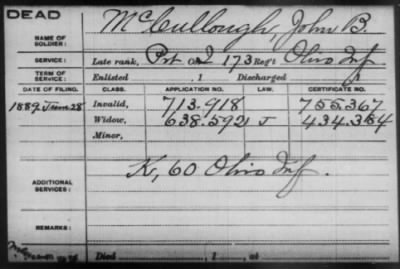 DEAD
NAME OF SOLDIER: McCullough, John B.
SERVICE: Late rank, Pvt Co I 173 Reg't Ohio Inf
TERM OF SERVICE: Enlisted , 1 Discharged , 1
DATE OF FILING. CLASS. APPLICATION NO. LAW. CERTIFICATE NO.
1889 June 28 Invalid, 713.918 755.367
Widow, 638.592 J 434.384
Minor,
ADDITIONAL SERVICES: K, 60 Ohio Inf.
REMARKS:
Died , 1 , at